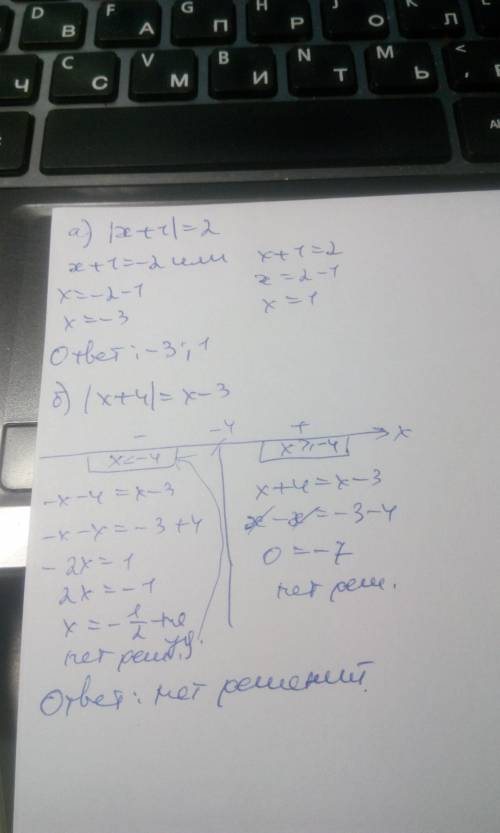 D F G H J K L
В А П Р О Л
C V B N M <
Ч С М И Т Ь
а) |x+1|=2
x+1=-2 или x+1=2
x=-2-1 x=2-1
x=-3 x=1
Ответ: -3; 1
б) |x+4|=x-3
- -4 + x
x<-4 x≥-4
-x-4=x-3 x+4=x-3
-x-x=-3+4 x-x=-3-4
-2x=1 0=-7
2x=-1 нет реш.
x=-1/2 - не
нет реш.
Ответ: нет решений.